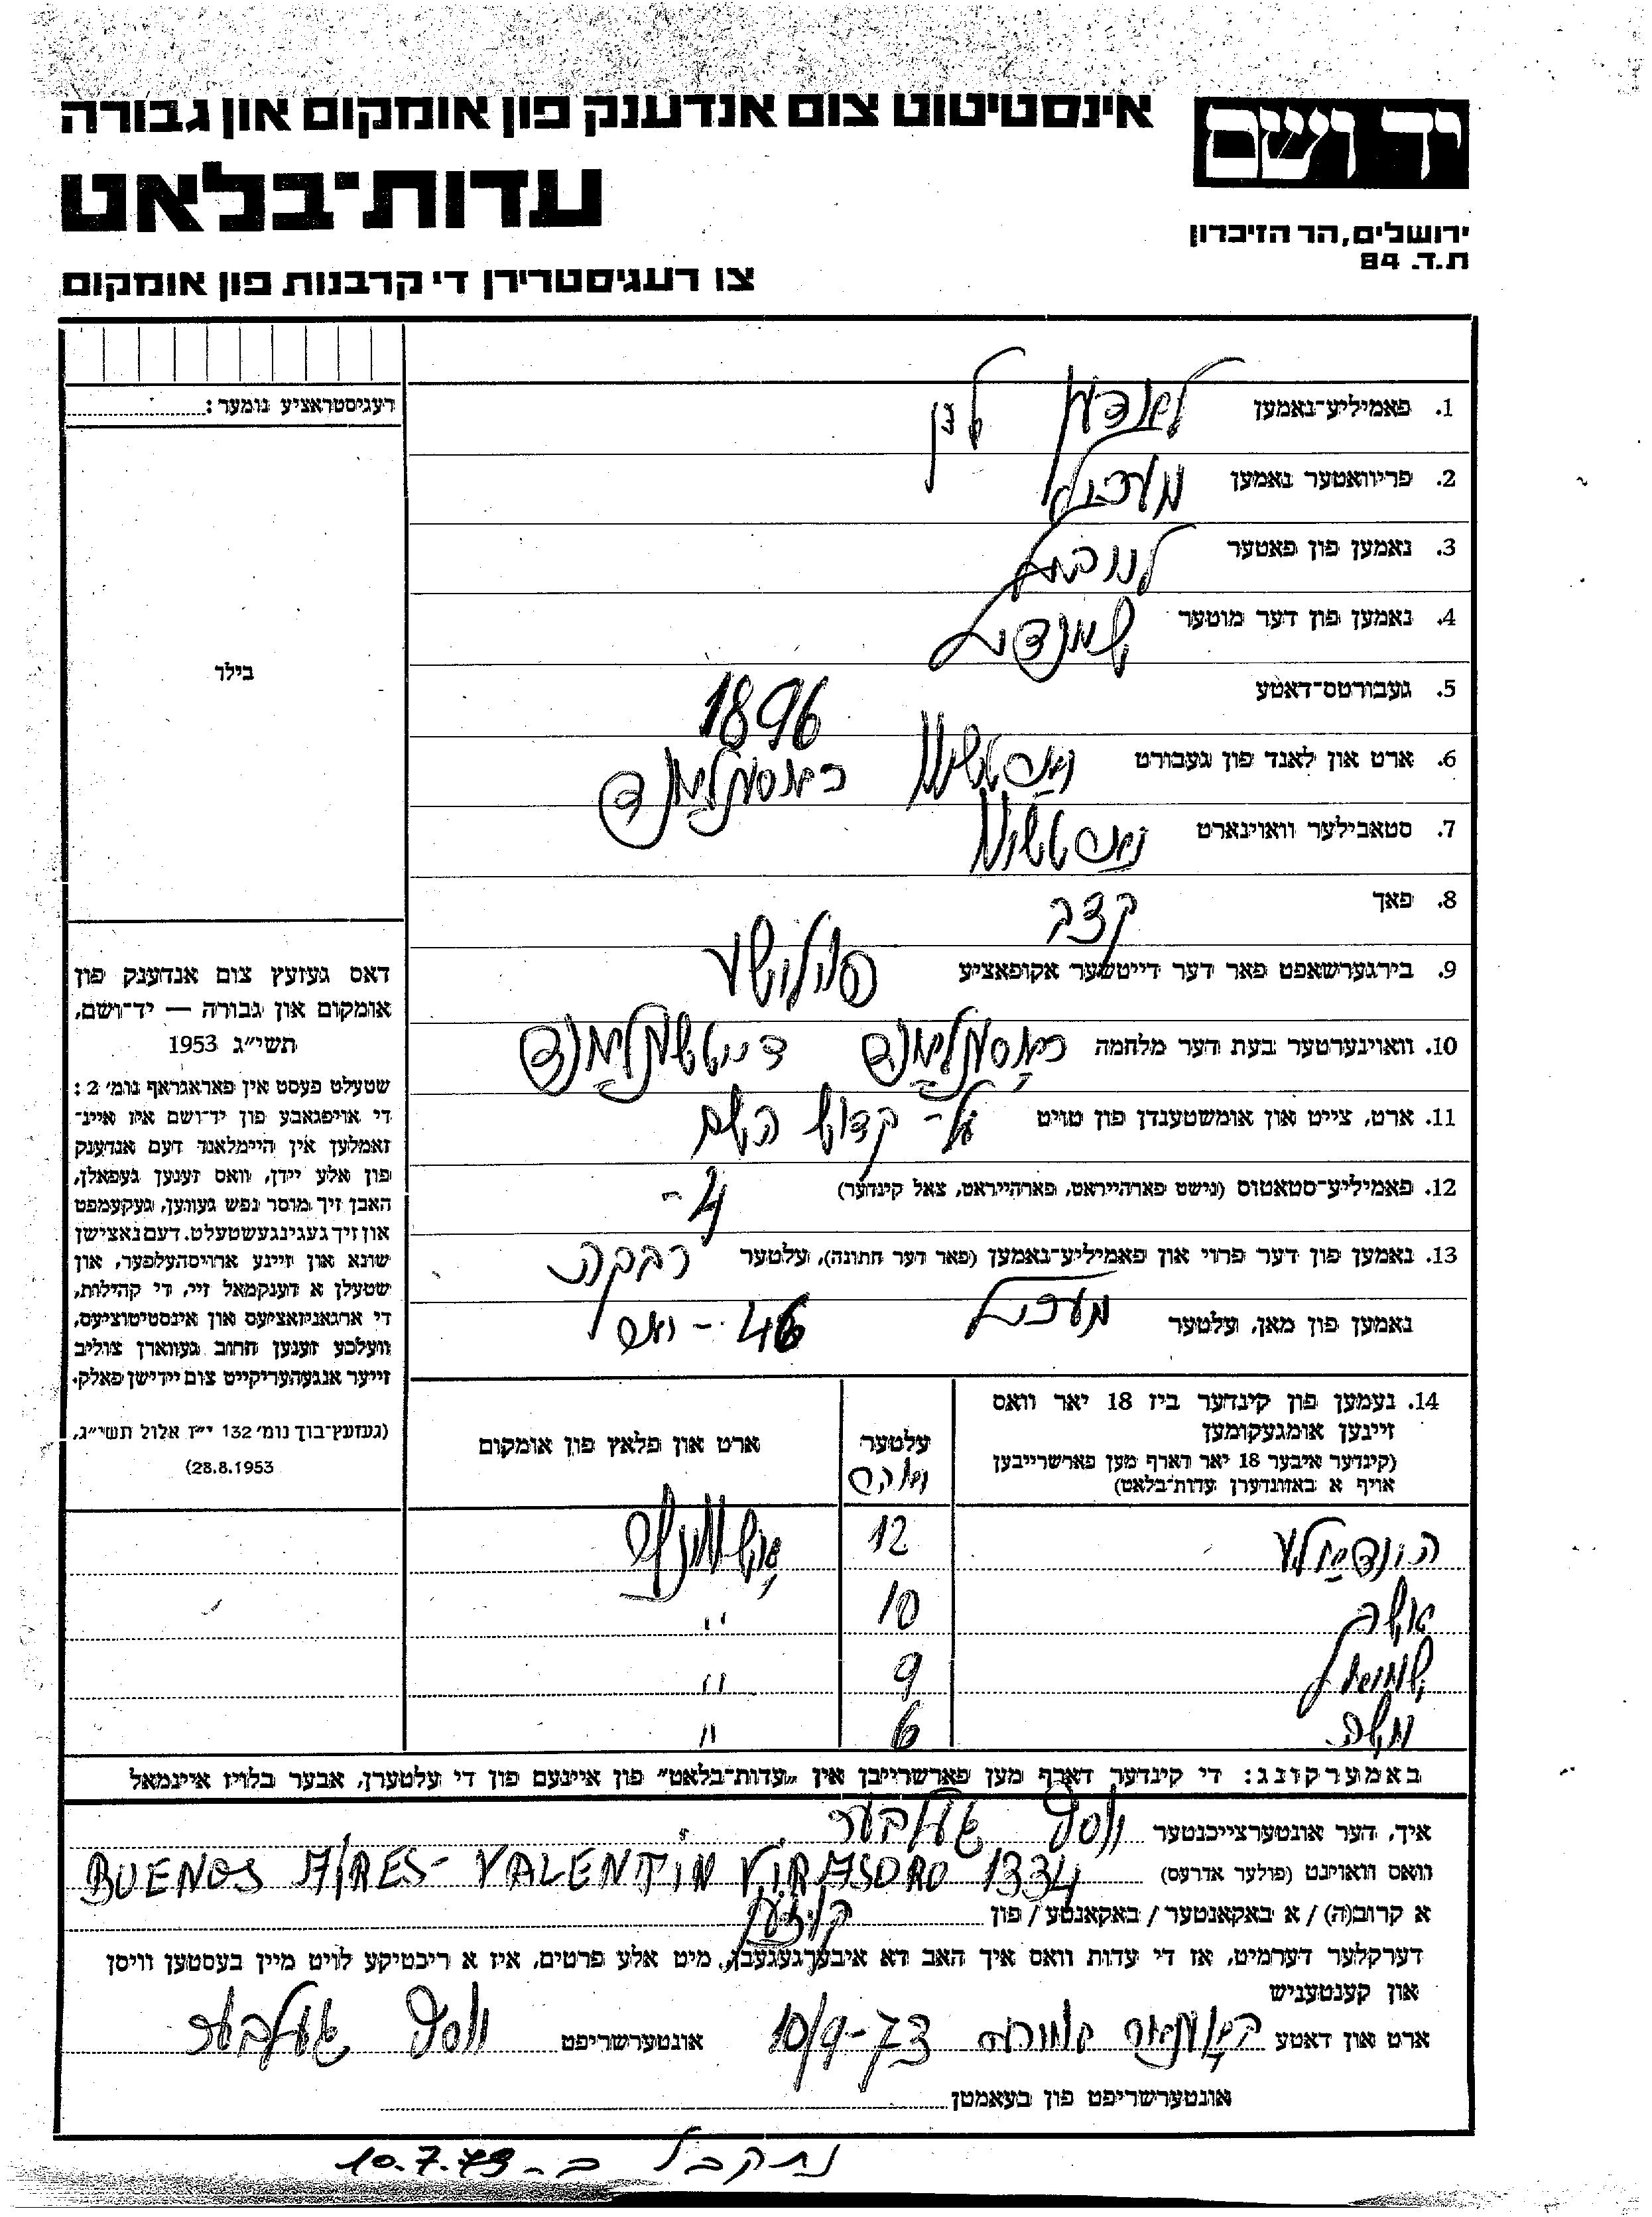 אינסטיטוט צום אנדענק פון אומקום און גבורה
יד ושם
עדות־בלאט
ירושלים, הר הזיכרון
ת.ד. 84
צו רעגיסטרירן די קרבנות פון אומקום
רעגיסטראציע נומער:
בילד
1. פאמיליע־נאמען
2. פריוואטער נאמען
3. נאמען פון פאטער
4. נאמען פון דער מוטער
5. געבורטס־דאטע 1896
6. ארט און לאנד פון געבורט
7. סטאבילער וואוינארט
8. פאך קצב
9. בירגערשאפט פאר דער דייטשער אקופאציע פוילישע
10. וואוינערטער בעת דער מלחמה רוסלאנד דייטשלאנד
11. ארט, צייט און אומשטענדן פון טויט על־ קדוש השם
12. פאמיליע־סטאטוס (נישט פארהייראט, פארהייראט, צאל קינדער) 4-
13. נאמען פון דער פרוי און פאמיליע־נאמען (פאר דער חתונה), עלטער רבקה
נאמען פון מאן, עלטער מענדל 46 - יאר
דאס געזעץ צום אנדענק פון
אומקום און גבורה — יד־ושם,
תשי״ג 1953
שטעלט פעסט אין פאראגראף נומ׳ 2:
די אויפגאבע פון יד־ושם איז איינ־
זאמלען אין היימלאנד דעם אנדענק
פון אלע יידן, וואס זענען געפאלן,
האבן זיך מוסר נפש געווען, געקעמפט
און זיך געגינגעשטעלט. דעם נאצישן
שונא און זיינע ארויסהעלפער, און
שטעלן א דענקמאל זיי, די קהילות,
די ארגאניזאציעס און אינסטיטוציעס,
וועלכע זענען חרוב געווארן צוליב
זייער אנגעהעריקייט צום יידישן פאלק.
(געזעץ־בוך נומ׳ 132 י״ז אלול תשי״ג,
28.8.1953)
14. נעמען פון קינדער ביז 18 יאר וואס
זיינען אומגעקומען
(קינדער איבער 18 יאר דארף מען פארשרייבן
אויף א באזונדערן עדות־בלאט)
עלטער
ארט און פלאץ פון אומקום
12
אשר 10 "
שמואל 9 "
משה 6 "
באמערקונג: די קינדער דארף מען פארשרייבן אין „עדות־בלאט" פון איינעם פון די עלטערן, אבער בלויז איינמאל
איך, דער אונטערצייכנטער יוסף
וואס וואוינט (פולער אדרעס) BUENOS AIRES- VALENTIN VIRASORO 1334
א קרוב(ה) / א באקאנטער / באקאנטע / פון קוזען
דערקלער דערמיט, אז די עדות וואס איך האב דא איבערגעגעבן, מיט אלע פרטים, איז א ריכטיקע לויט מיין בעסטען וויסן
און קענטעניש
ארט און דאטע 10/9-73 אונטערשריפט יוסף
אונטערשריפט פון בעאמטן
נתקבל ב- 10.7.73